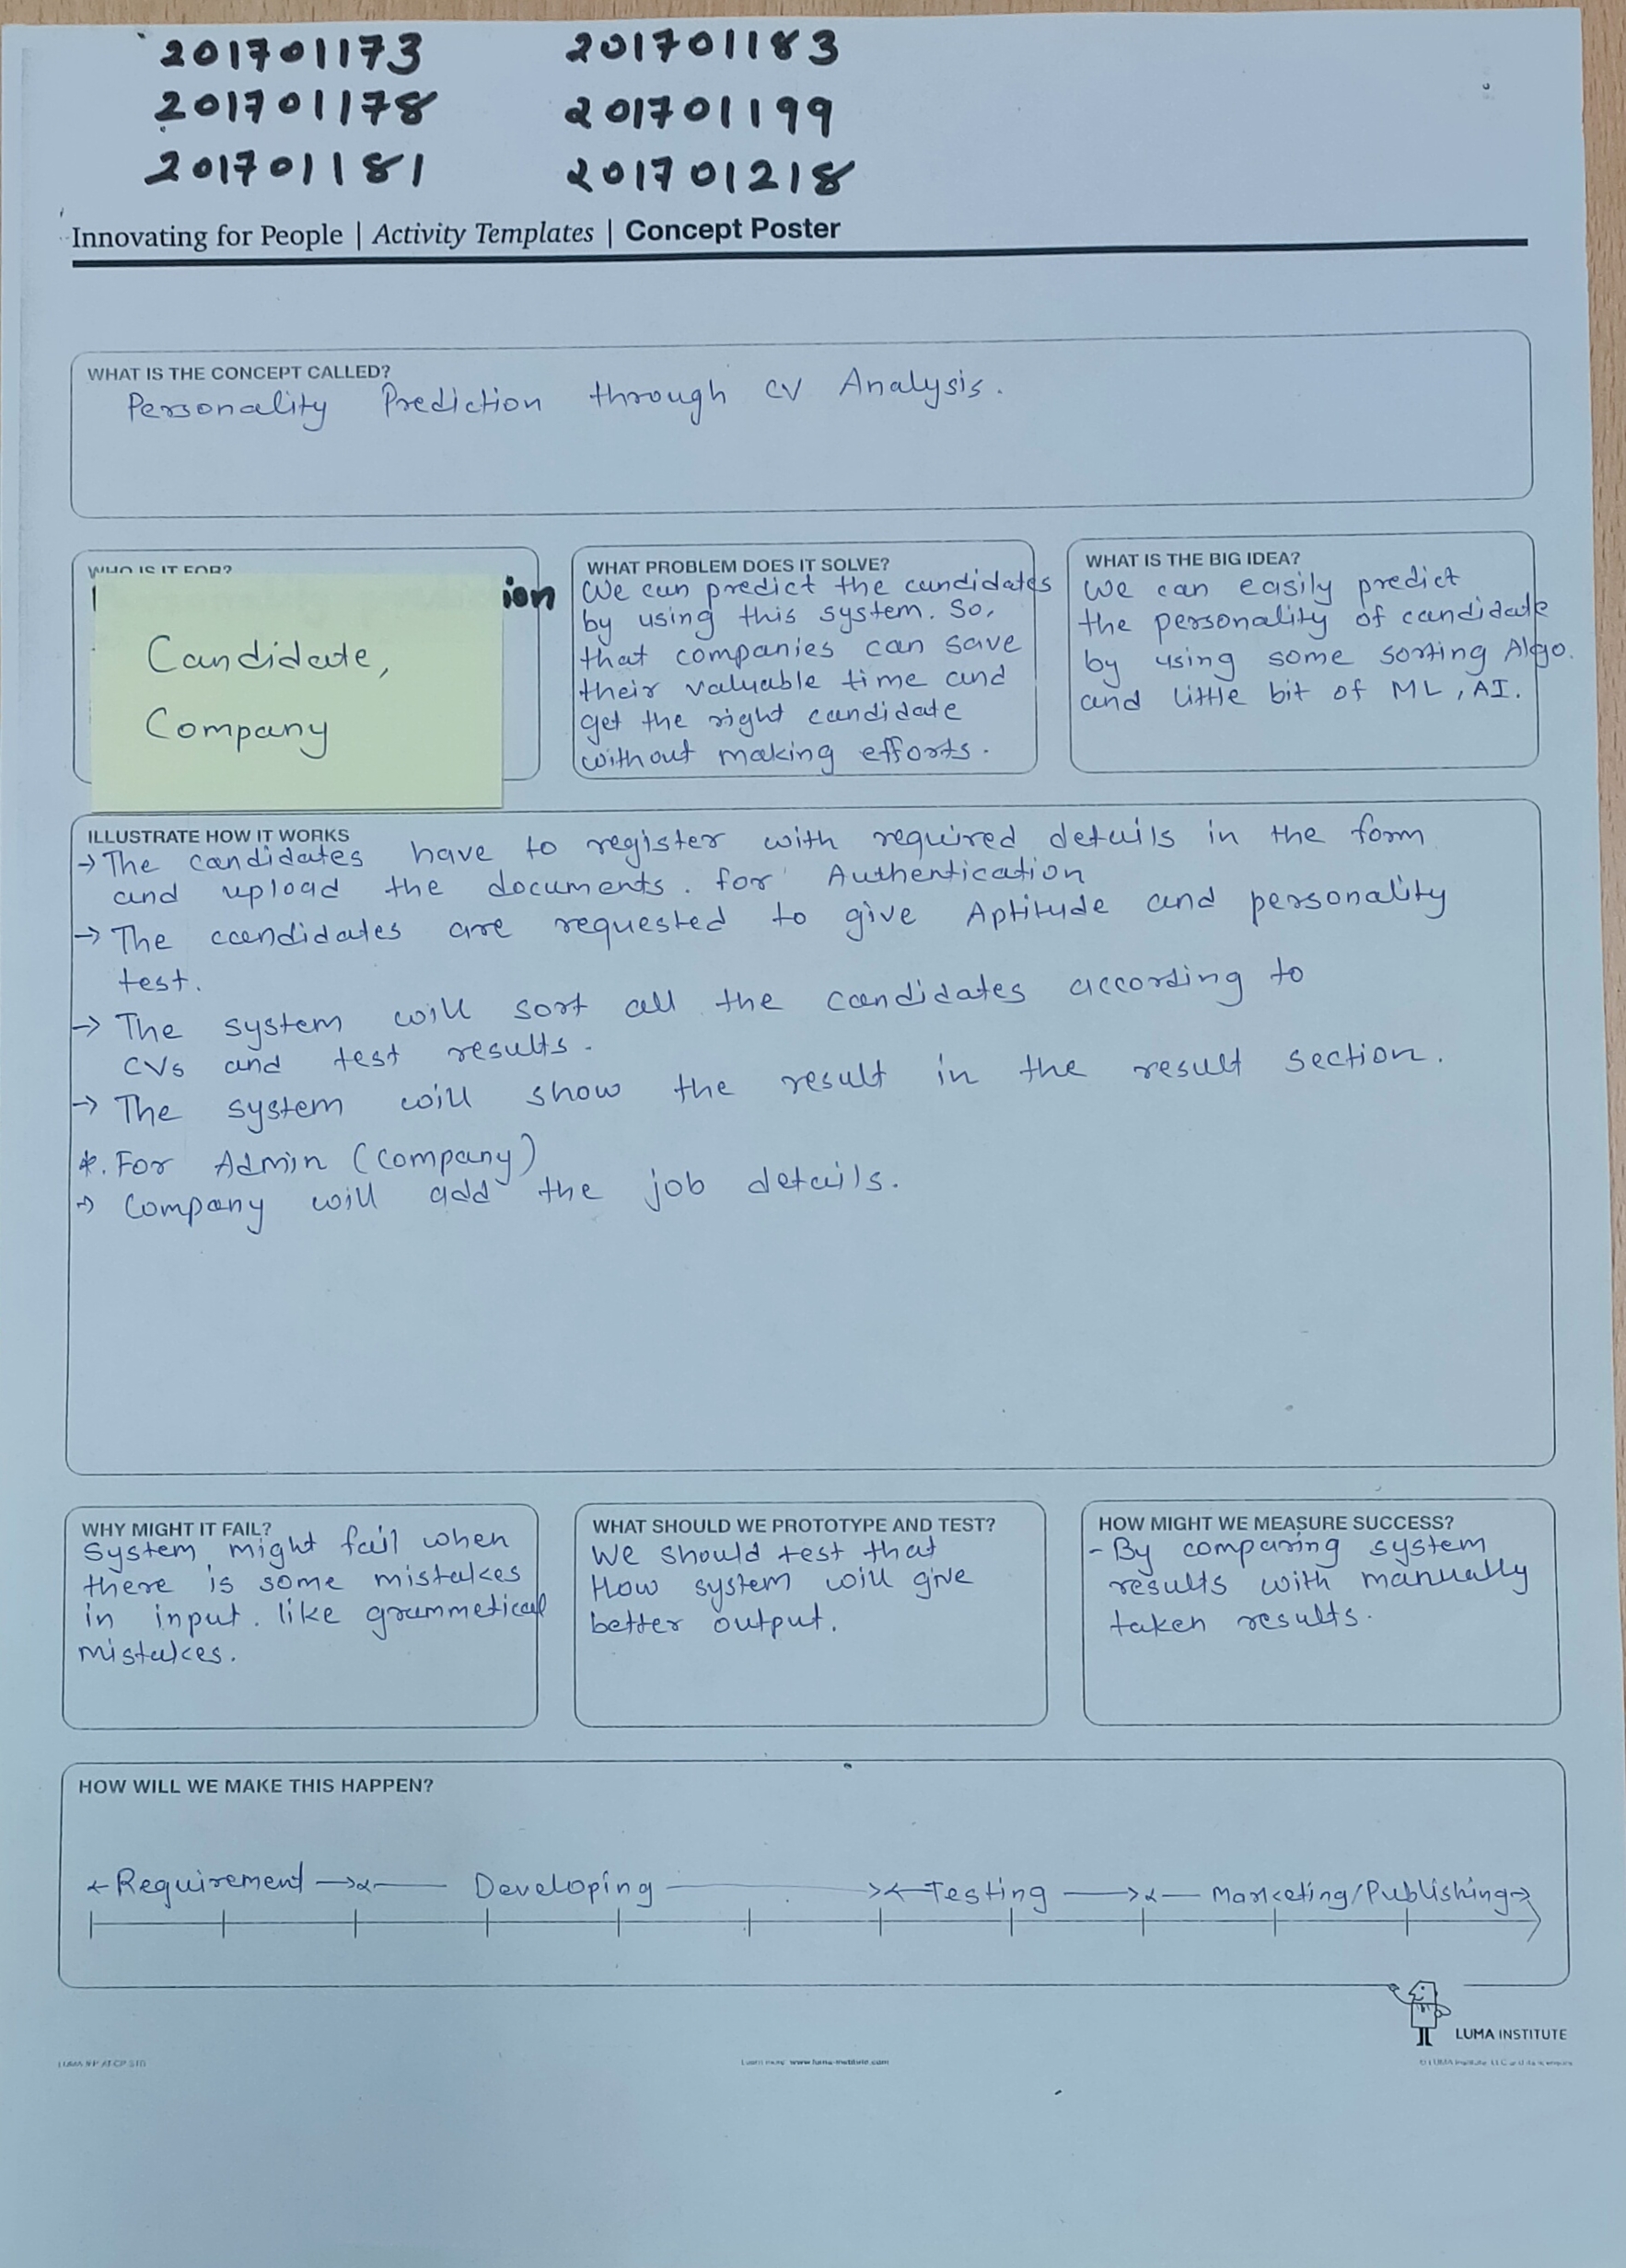 201701173
201701178
201701181
201701183
201701199
201701218
Innovating for People | Activity Templates | Concept Poster
WHAT IS THE CONCEPT CALLED?
Personality Prediction through CV Analysis.
WHO IS IT FOR?
ion
Candidate,
Company
WHAT PROBLEM DOES IT SOLVE?
We can predict the candidates
by using this system. So,
that companies can save
their valuable time and
get the right candidate
without making efforts.
WHAT IS THE BIG IDEA?
We can easily predict
the personality of candidate
by using some sorting Algo.
and little bit of ML, AI.
ILLUSTRATE HOW IT WORKS
→ The candidates have to register with required details in the form
and upload the documents. for Authentication
→ The candidates are requested to give Aptitude and personality
test.
→ The system will sort all the candidates according to
CVs and test results.
→ The system will show the result in the result section.
*. For Admin (company)
→ Company will add the job details.
WHY MIGHT IT FAIL?
System might fail when
there is some mistakes
in input. like grammetical
mistakes.
WHAT SHOULD WE PROTOTYPE AND TEST?
We should test that
How system will give
better output.
HOW MIGHT WE MEASURE SUCCESS?
- By comparing system
results with manually
taken results.
HOW WILL WE MAKE THIS HAPPEN?
Requirement Developing Testing Marketing/Publishing
LUMA INSTITUTE
Learn more: www.luma-institute.com